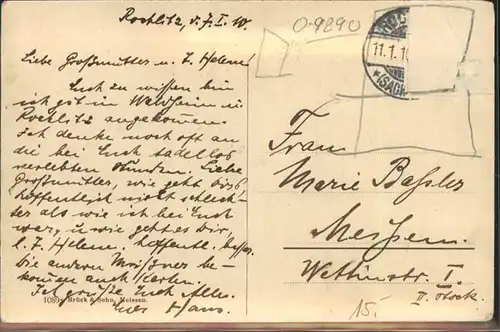 Rochlitz, d. 7. I. 10.
Liebe Großmutter u. T. Helene!
Euch zu wissen bin
ich gut in Waldheim u.
Rochlitz angekommen.
Ich denke noch oft an
die bei Euch tadellos
verlebten Stunden. Liebe
Großmutter, wie geht Dirs,
hoffentlich nicht schlech-
ter als wie ich bei Euch
war, u. wie geht es Dir,
l. T. Helene, hoffentl. besser.
Die anderen be-
kommen auch Karten.
Ich grüße Euch Alle.
Euer Hans.
1089 Brück & Sohn, Meissen.
0-9290
11.1.10
*(SACH
Frau
Marie Bassler
Meißen.
Wettinstr. I.
II. Stock.
15.-